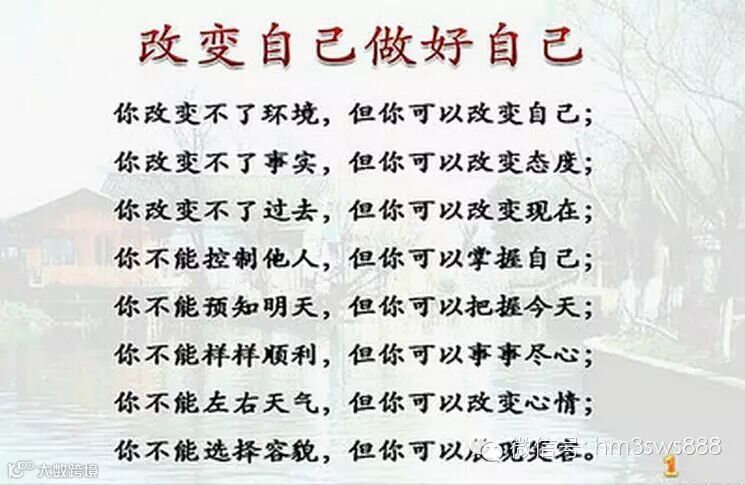 改变自己做好自己
你改变不了环境，但你可以改变自己；
你改变不了事实，但你可以改变态度；
你改变不了过去，但你可以改变现在；
你不能控制他人，但你可以掌握自己；
你不能预知明天，但你可以把握今天；
你不能样样顺利，但你可以事事尽心；
你不能左右天气，但你可以改变心情；
你不能选择容貌，但你可以展现笑容。
微信号: hm3sws888
大数跨境
1